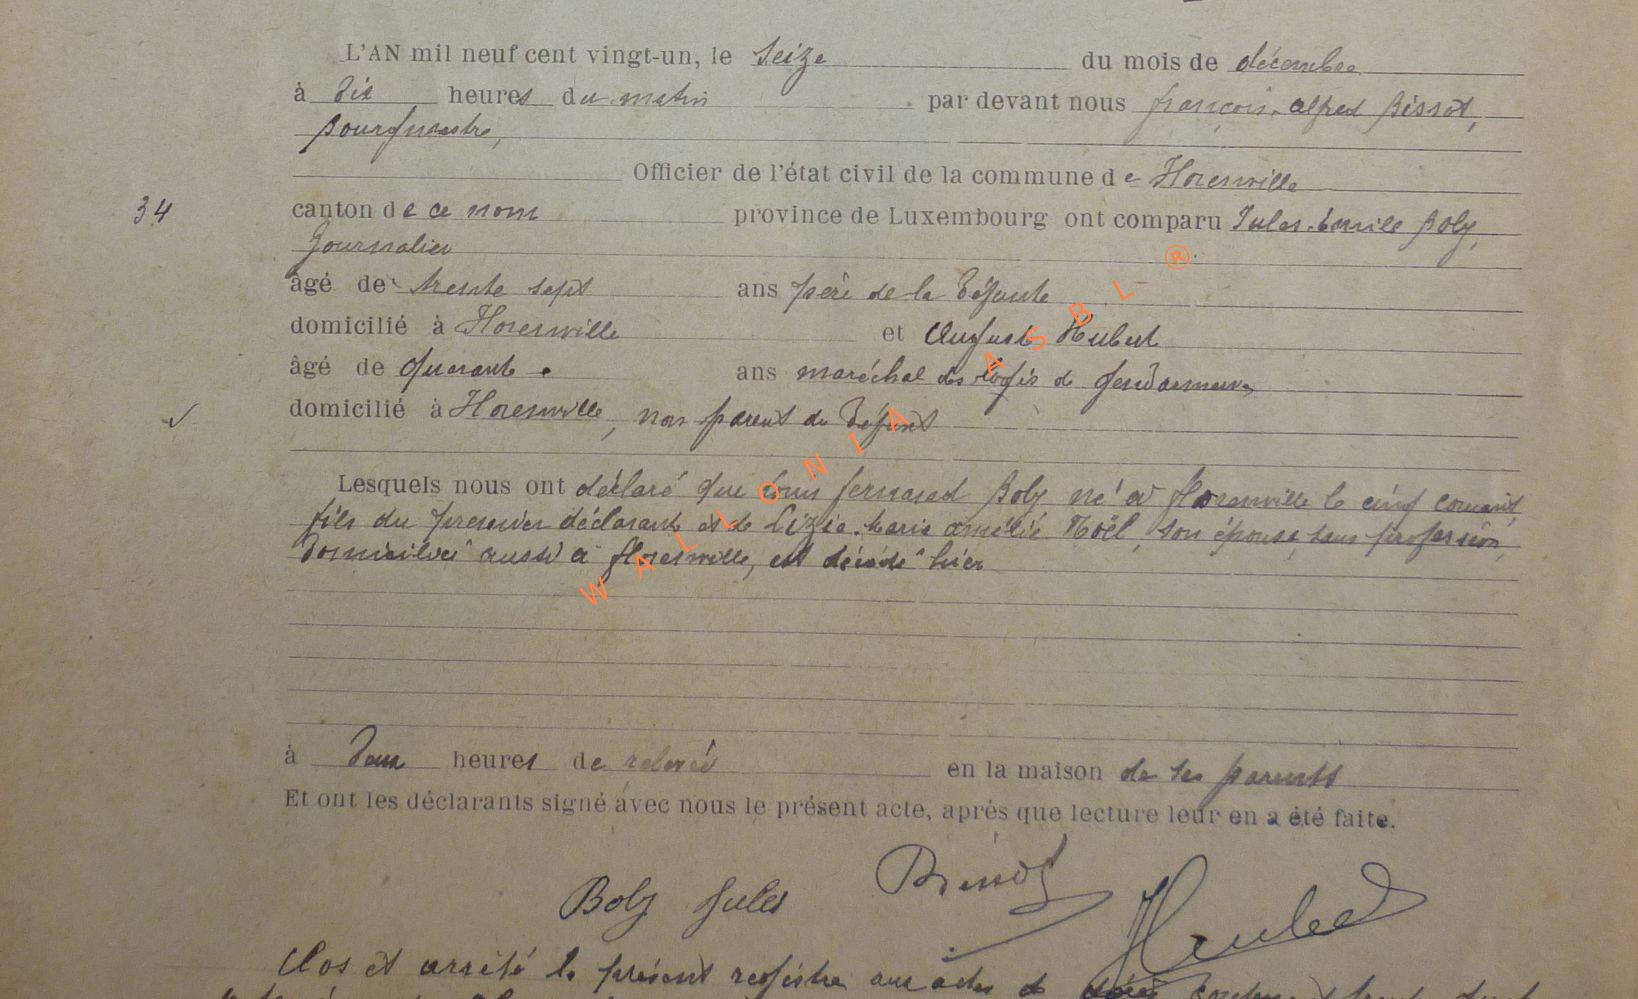 L'AN mil neuf cent vingt-un, le seize du mois de décembre
à dix heures du matin par devant nous françois-alfred Bissot,
Bourgmestre,
Officier de l'état civil de la commune de Florenville
34 canton de ce nom province de Luxembourg ont comparu Jules-Emile Boly,
Journalier
âgé de trente sept ans père de le défunte
domicilié à Florenville et August Hubert
âgé de quarante ans maréchal des logis de gendarmerie,
domicilié à Florenville, non parent du défunt
Lesquels nous ont déclaré que Louis fernand Boly né à florenville le cinq courant,
fils du premier déclarant et de Lizie-Marie amélie Noël, son épouse, sans profession,
domiciliée aussi à florenville, est décédé hier
à deux heures de relevée en la maison de ses parents
Et ont les déclarants signé avec nous le présent acte, après que lecture leur en a été faite.
Bissot
Boly Jules Hubert
Clos et arrêté le présent registre aux actes de décès
WALLONIA ASBL ®